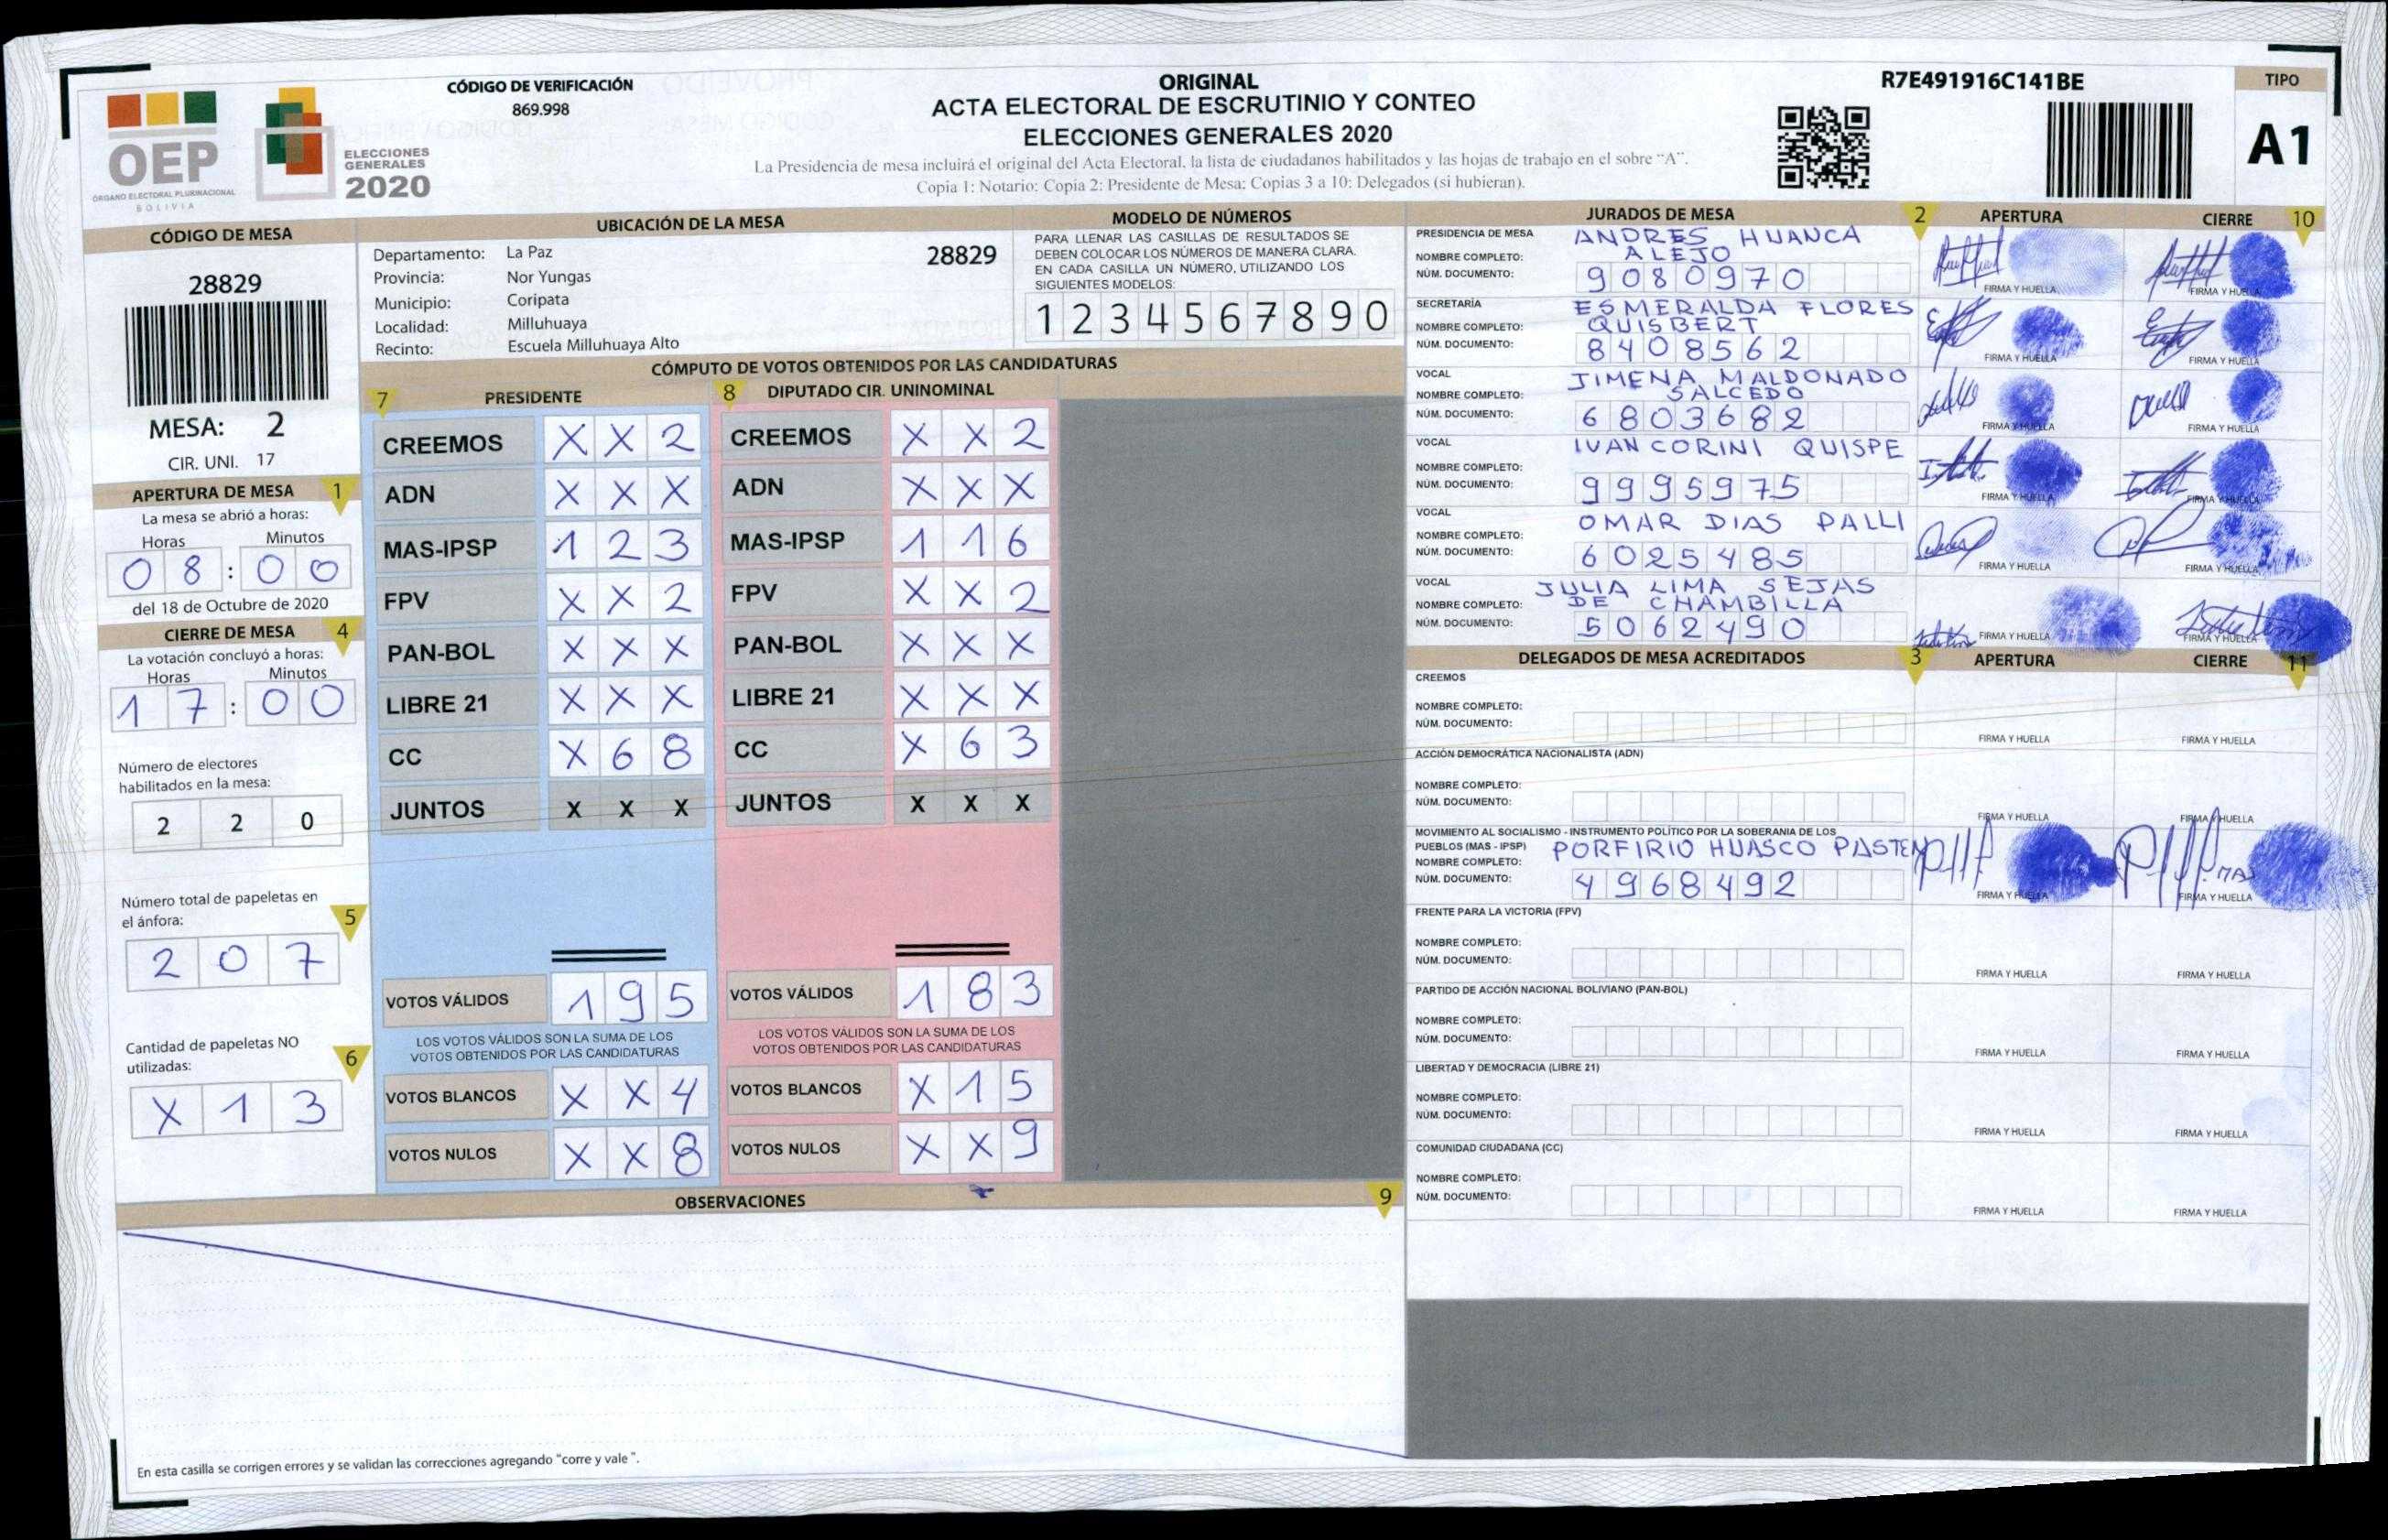 CÓDIGO DE VERIFICACIÓN
869.998
ORIGINAL
ACTA ELECTORAL DE ESCRUTINIO Y CONTEO
ELECCIONES GENERALES 2020
La Presidencia de mesa incluirá el original del Acta Electoral, la lista de ciudadanos habilitados y las hojas de trabajo en el sobre "A".
Copia 1: Notario; Copia 2: Presidente de Mesa; Copias 3 a 10: Delegados (si hubieran).
R7E491916C141BE
TIPO
A1
OEP
ÓRGANO ELECTORAL PLURINACIONAL
BOLIVIA
ELECCIONES
GENERALES
2020
CÓDIGO DE MESA
28829
MESA: 2
CIR. UNI. 17
APERTURA DE MESA 1
La mesa se abrió a horas:
Horas Minutos
08:00
del 18 de Octubre de 2020
CIERRE DE MESA 4
La votación concluyó a horas:
Horas Minutos
17:00
Número de electores
habilitados en la mesa:
2 2 0
Número total de papeletas en
el ánfora: 5
2 0 7
Cantidad de papeletas NO
utilizadas: 6
X 1 3
UBICACIÓN DE LA MESA
Departamento: La Paz 28829
Provincia: Nor Yungas
Municipio: Coripata
Localidad: Milluhuaya
Recinto: Escuela Milluhuaya Alto
MODELO DE NÚMEROS
PARA LLENAR LAS CASILLAS DE RESULTADOS SE
DEBEN COLOCAR LOS NÚMEROS DE MANERA CLARA.
EN CADA CASILLA UN NÚMERO, UTILIZANDO LOS
SIGUIENTES MODELOS:
1 2 3 4 5 6 7 8 9 0
CÓMPUTO DE VOTOS OBTENIDOS POR LAS CANDIDATURAS
7 PRESIDENTE
CREEMOS X X 2
ADN X X X
MAS-IPSP 1 2 3
FPV X X 2
PAN-BOL X X X
LIBRE 21 X X X
CC X 6 8
JUNTOS X X X
VOTOS VÁLIDOS 1 9 5
LOS VOTOS VÁLIDOS SON LA SUMA DE LOS
VOTOS OBTENIDOS POR LAS CANDIDATURAS
VOTOS BLANCOS X X 4
VOTOS NULOS X X 8
8 DIPUTADO CIR. UNINOMINAL
CREEMOS X X 2
ADN X X X
MAS-IPSP 1 1 6
FPV X X 2
PAN-BOL X X X
LIBRE 21 X X X
CC X 6 3
JUNTOS X X X
VOTOS VÁLIDOS 1 8 3
LOS VOTOS VÁLIDOS SON LA SUMA DE LOS
VOTOS OBTENIDOS POR LAS CANDIDATURAS
VOTOS BLANCOS X 1 5
VOTOS NULOS X X 9
OBSERVACIONES 9
En esta casilla se corrigen errores y se validan las correcciones agregando "corre y vale".
JURADOS DE MESA 2 APERTURA CIERRE 10
PRESIDENCIA DE MESA
NOMBRE COMPLETO: ANDRES HUANCA
ALEJO
NÚM. DOCUMENTO: 9080970
FIRMA Y HUELLA FIRMA Y HUELLA
SECRETARÍA
NOMBRE COMPLETO: ESMERALDA FLORES
QUISBERT
NÚM. DOCUMENTO: 8408562
FIRMA Y HUELLA FIRMA Y HUELLA
VOCAL
NOMBRE COMPLETO: JIMENA MALDONADO
SALCEDO
NÚM. DOCUMENTO: 6803682
FIRMA Y HUELLA FIRMA Y HUELLA
VOCAL
NOMBRE COMPLETO: IVAN CORINI QUISPE
NÚM. DOCUMENTO: 9995975
FIRMA Y HUELLA FIRMA Y HUELLA
VOCAL
NOMBRE COMPLETO: OMAR DIAS PALLI
NÚM. DOCUMENTO: 6025485
FIRMA Y HUELLA FIRMA Y HUELLA
VOCAL
NOMBRE COMPLETO: JULIA LIMA SEJAS
DE CHAMBILLA
NÚM. DOCUMENTO: 5062490
FIRMA Y HUELLA FIRMA Y HUELLA
DELEGADOS DE MESA ACREDITADOS 3 APERTURA CIERRE 11
CREEMOS
NOMBRE COMPLETO:
NÚM. DOCUMENTO:
FIRMA Y HUELLA FIRMA Y HUELLA
ACCIÓN DEMOCRÁTICA NACIONALISTA (ADN)
NOMBRE COMPLETO:
NÚM. DOCUMENTO:
FIRMA Y HUELLA FIRMA Y HUELLA
MOVIMIENTO AL SOCIALISMO - INSTRUMENTO POLÍTICO POR LA SOBERANIA DE LOS
PUEBLOS (MAS - IPSP)
NOMBRE COMPLETO: PORFIRIO HUASCO PASTEN
NÚM. DOCUMENTO: 4968492
FIRMA Y HUELLA FIRMA Y HUELLA
FRENTE PARA LA VICTORIA (FPV)
NOMBRE COMPLETO:
NÚM. DOCUMENTO:
FIRMA Y HUELLA FIRMA Y HUELLA
PARTIDO DE ACCIÓN NACIONAL BOLIVIANO (PAN-BOL)
NOMBRE COMPLETO:
NÚM. DOCUMENTO:
FIRMA Y HUELLA FIRMA Y HUELLA
LIBERTAD Y DEMOCRACIA (LIBRE 21)
NOMBRE COMPLETO:
NÚM. DOCUMENTO:
FIRMA Y HUELLA FIRMA Y HUELLA
COMUNIDAD CIUDADANA (CC)
NOMBRE COMPLETO:
NÚM. DOCUMENTO:
FIRMA Y HUELLA FIRMA Y HUELLA